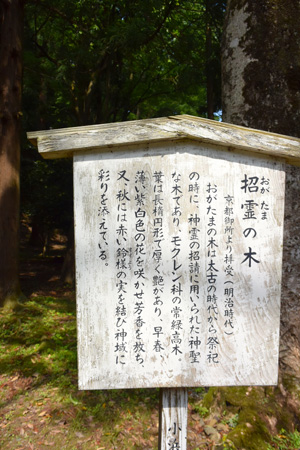 おがたま
招霊の木
京都御所より拝受(明治時代)
おがたまの木は太古の時代から祭祀
の時に、神霊の招請に用いられた神聖
な木であり、モクレン科の常緑高木。
葉は長楕円形で厚く艶があり、早春、
薄い紫白色の花を咲かせ芳香を放ち、
又、秋には赤い鈴様の実を結び神域に
彩りを添えている。
小浜